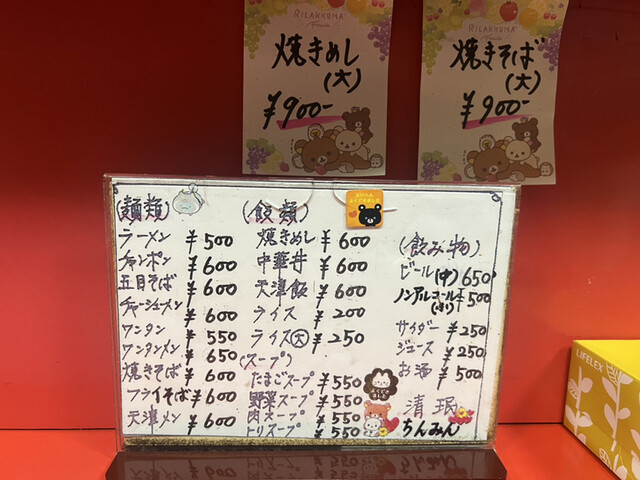 RILAKKUMA
焼きめし
(大)
¥900-
RILAKKUMA
焼きそば
(大)
¥900-
(麺類)
ラーメン ¥500
チャンポン ¥600
五目そば ¥600
チャーシューメン ¥600
ワンタン ¥550
ワンタンメン ¥650
焼きそば ¥600
フライそば ¥600
天津メン ¥600
(飯類)
焼きめし ¥600
中華丼 ¥600
天津飯 ¥600
ライス ¥200
ライス(大) ¥250
(スープ)
たまごスープ ¥550
野菜スープ ¥550
肉スープ ¥550
トリスープ ¥550
(飲み物)
ビール(中) 650
ノンアルコールビール(小) ¥500
サイダー ¥250
ジュース ¥250
お酒 ¥500
清珉
ちんみん
LIFELEX